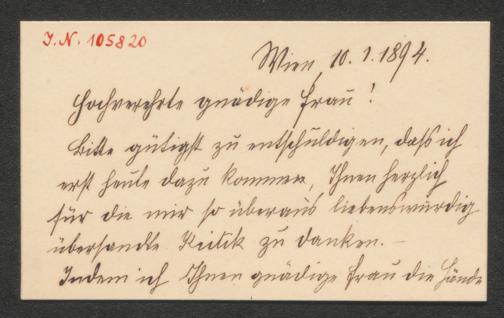 J.N. 105820
Wien, 10.1.1894.
Hochverehrte gnädige Frau!
Bitte gütigst zu entschuldigen, daß ich
erst heute dazu komme, Ihnen herzlich
für die mir so überaus liebenswürdig
übersandte Kritik zu danken. –
Indem ich Ihnen gnädige Frau die Hände